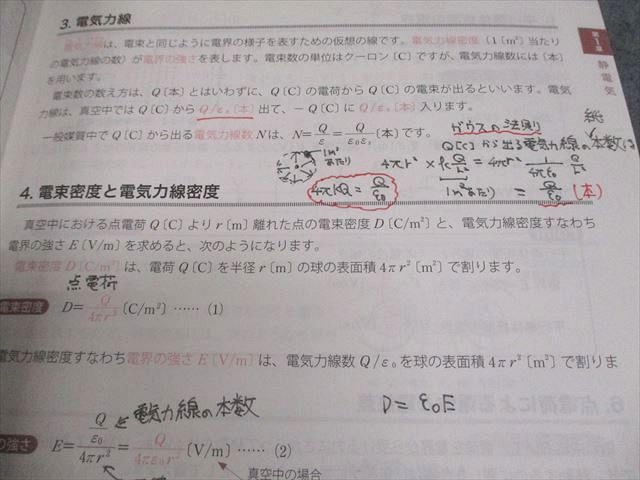 3. 電気力線
電気力線は、電束と同じように電界の様子を表すための仮想の線です。電気力線密度（1〔m²〕当たり
の電気力線の数）が電界の強さを表します。電束数の単位はクーロン〔C〕ですが、電気力線数には〔本〕
を用います。
電束数の数え方は、Q〔本〕とはいわずに、Q〔C〕の電荷から Q〔C〕の電束が出るといいます。電気
力線は、真空中では Q〔C〕から Q/ε₀〔本〕出て、－Q〔C〕に Q/ε₀〔本〕入ります。
一般媒質中で Q〔C〕から出る電気力線数 N は、N=Q/ε=Q/ε₀εs〔本〕です。
ガウスの法則
Q[C]から出る電気力線の総本数は
1m²あたり
4πr² × k Q/r² = 4πr² · 1/4πε₀ Q/r²
1m²あたり
4πkQ = Q/ε₀
= Q/ε₀ [本]
第1章
静電気
4. 電束密度と電気力線密度
真空中における点電荷 Q〔C〕より r〔m〕離れた点の電束密度 D〔C/m²〕と、電気力線密度すなわち
電界の強さ E〔V/m〕を求めると、次のようになります。
電束密度 D〔C/m²〕は、電荷 Q〔C〕を半径 r〔m〕の球の表面積 4πr²〔m²〕で割ります。
点電荷
電束密度 D=Q/4πr²〔C/m²〕……(1)
電気力線密度すなわち電界の強さ E〔V/m〕は、電気力線数 Q/ε₀ を球の表面積 4πr²〔m²〕で割りま
電気力線の本数
D = ε₀E
の強さ E=Q/ε₀/4πr²=Q/4πε₀r²〔V/m〕……(2)
真空中の場合